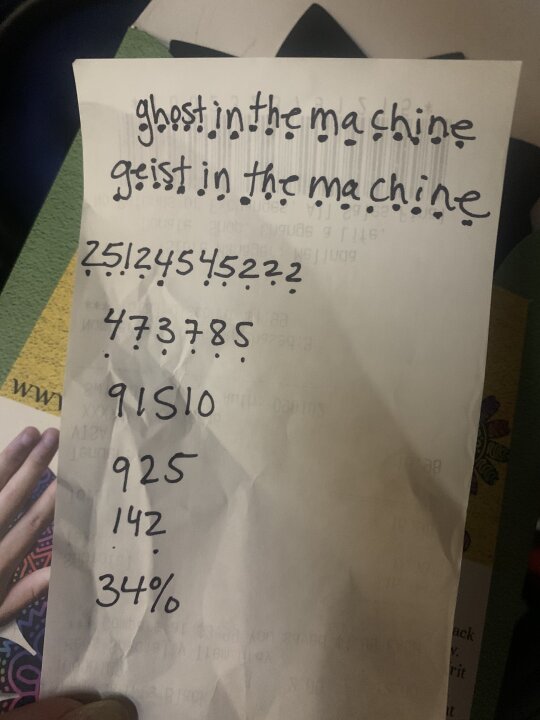 ghost in the machine
geist in the machine
25124545222
473785
91510
925
142
34%